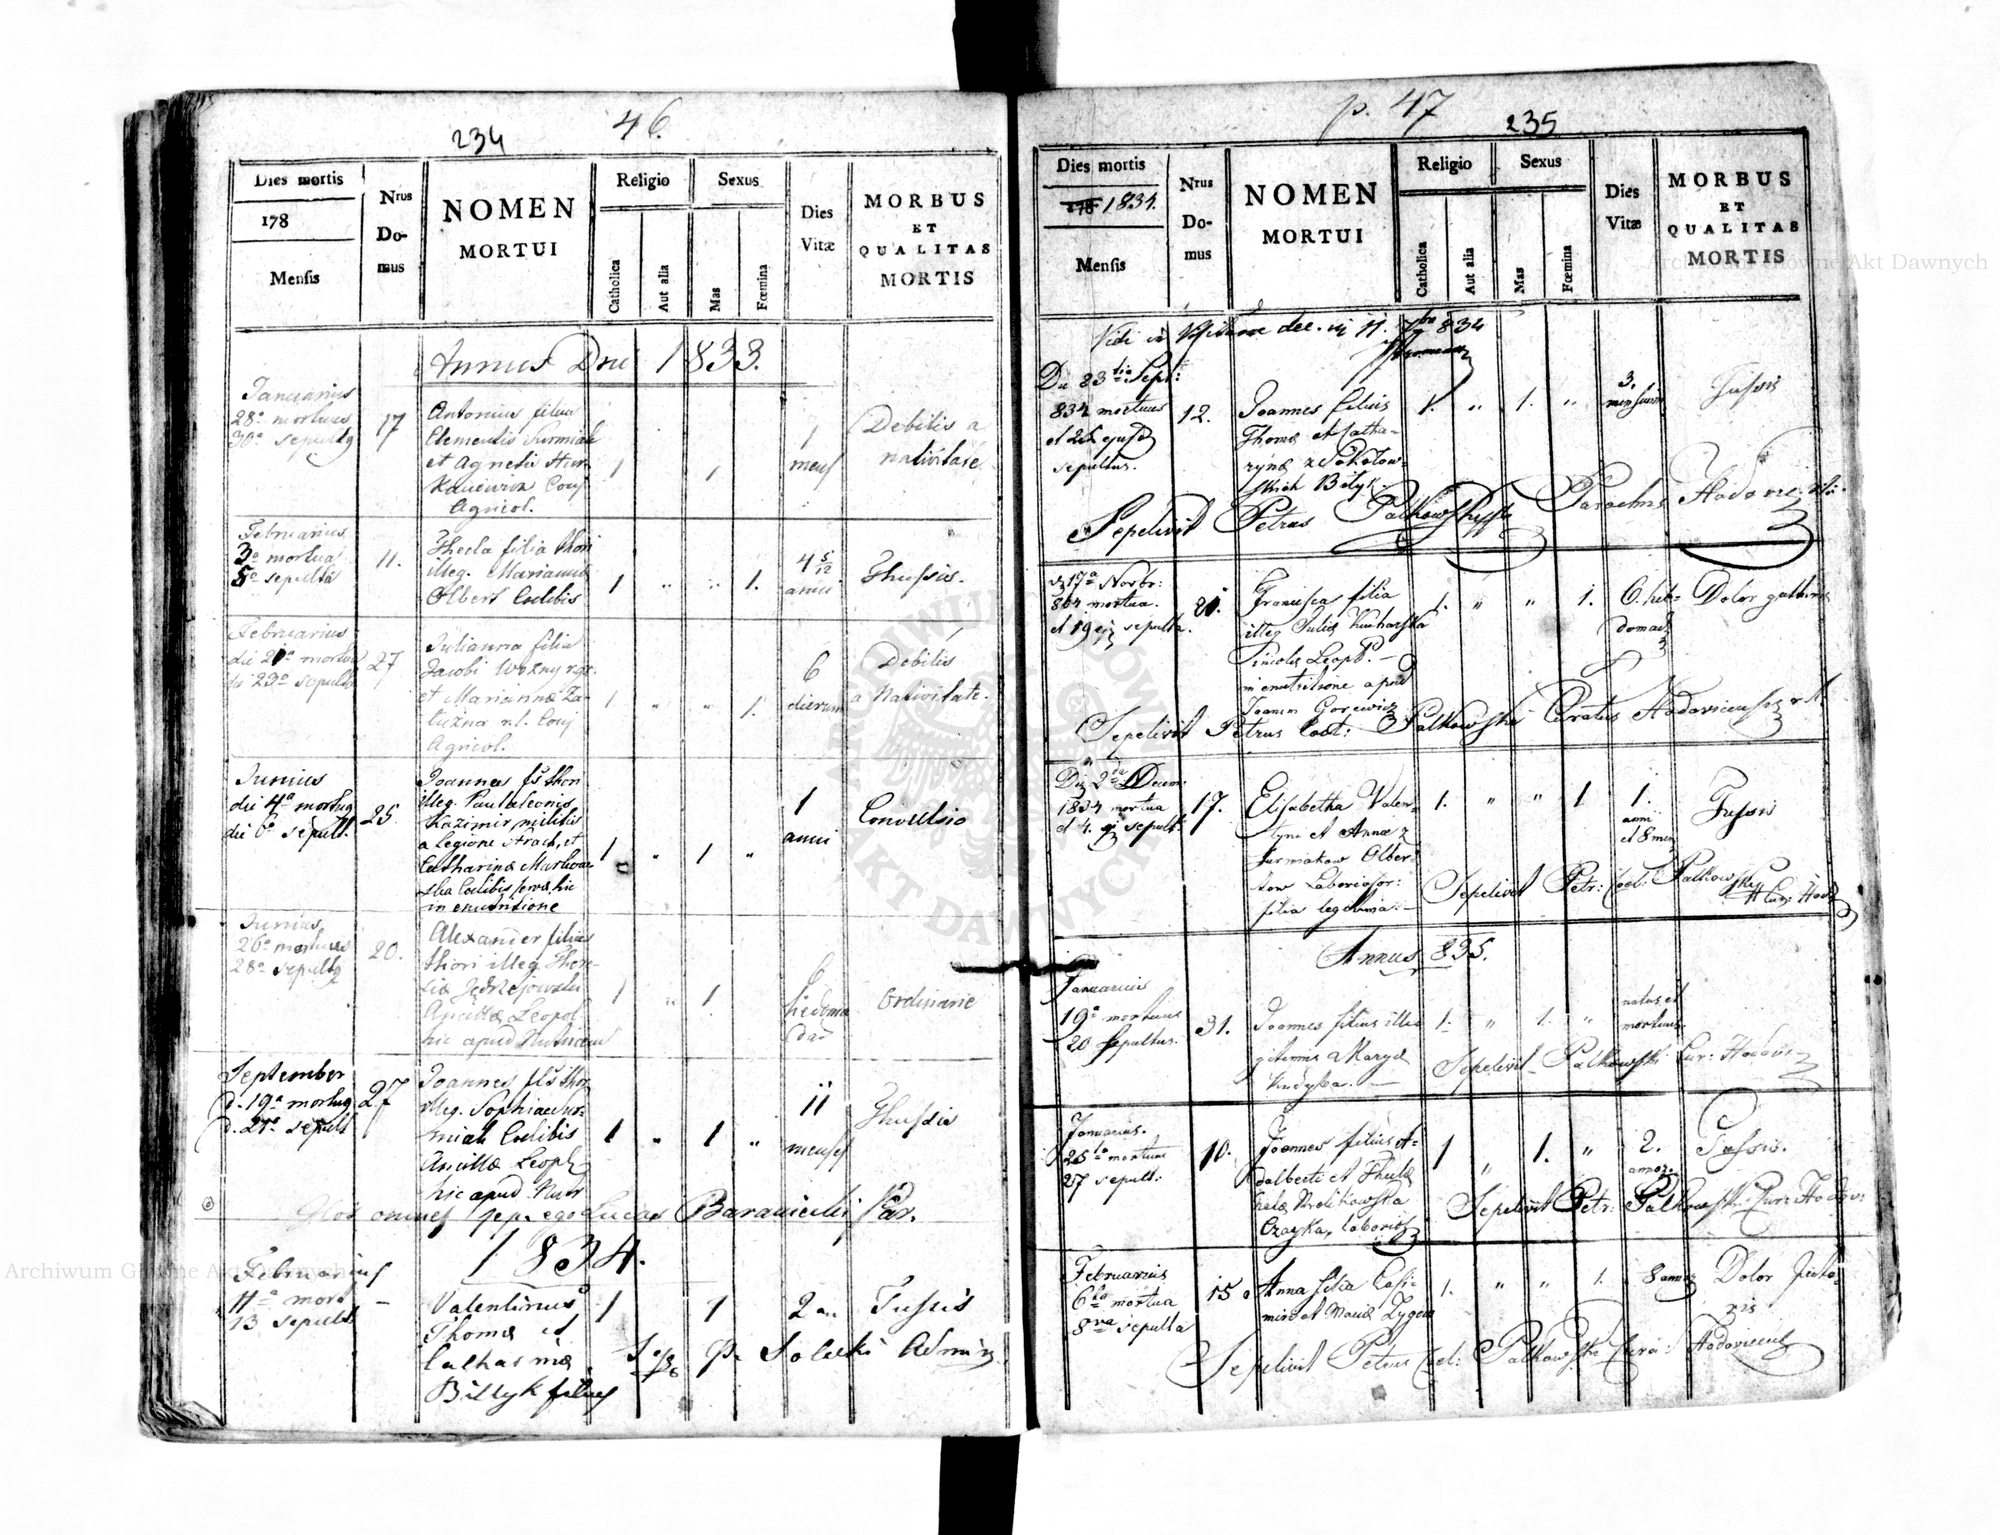 234
46.
Dies mortis
178
Mensis
Nrus
Do-
mus
NOMEN
MORTUI
Religio
Catholica
Aut alia
Sexus
Mas
Fœmina
Dies
Vitæ
MORBUS
ET
QUALITAS
MORTIS
Annus Dni 1833.
Januarius
28a mortuus
30a sepultq
17
Antonius filius
Clementis Surmiak
et Agnetis
Conj
Agricol.
1
1
1
mens
Debilis a
nativitate.
Februarius
3a mortua
5a sepulta
11.
Thecla filia thori
illeg. Marianna
Olbert Cœlibis
1
"
"
1.
4 5/12
anni
Thussis.
Februarius
die 21a mortua
de 23a sepulta
27
Julianna filia
Jacobi Wozny
et Mariannæ Za-
luzna Conj
Agricol.
1
"
"
1.
6
dierum
Debilis
a Nativitate.
Junius
die 4a mortuq
die 6a sepult.
25.
Joannes fs thori
illeg. Pantaleonis
Kazimir, militis
a Legione Strach, et
Catharinæ
Cœlibis hic
in enutritione
1
"
1
"
1
anni
Convulsio
Junius
26a mortuus
28a sepultq
20.
Alexander filius
thori illeg. There-
siæ
Ancillæ Leopol
hic apud Nutricem
1
"
1
6
hebdoma
dar
Ordinarie
September
d. 19a mortuq
d. 21a sepult
27
Joannes fs thor
illeg. Sophiae Sur-
miak Cœlibis
Ancillæ Leopl
hic apud Nutr
1
"
1
"
11
menses
Thussis
omnes sep. ego Lucas Baraniecki Par.
1834.
Februarius
11a mort
13 sepult
-
Valentinus
Thomæ et
Catharinæ
Billyk filius
1
1
2 an
Tussis
Solecki Admin
p. 47
235
Dies mortis
178 1834.
Mensis
Nrus
Do-
mus
NOMEN
MORTUI
Religio
Catholica
Aut alia
Sexus
Mas
Fœmina
Dies
Vitæ
MORBUS
ET
QUALITAS
MORTIS
Vidi in Visitatione dec. 11. 7bre 834
Die 23tia Sept:
834 mortuus
et 25 ejusd
sepultus.
12.
Joannes filius
Thomæ et Catha-
rynæ z Sokolow-
skich Bilyk.
1.
"
1.
"
3.
mensium
Tussis
Sepelivit Petrus Palkowski Parochus
17a Novbr:
834 mortua.
et 19 ejq sepulta.
21.
Francisca filia
illeg Juliæ Kucharska
Leopl.
in enutritione apud
Joanem Gorewicz
1.
"
"
1.
6. heb-
domad
Dolor gutturis
Sepelivit Petrus Coel: Palkowski Curatus Hodovicensis
Die 2da Decem:
1834 mortua
et 4. ej sepult:
17.
Elisabetha Valen-
tyni et Annæ z
Surmiakow Olber-
tow Laborios:
filia legitima.
1.
"
"
1
1.
anni
et 8 men
Tussis
Sepelivit Petr: Coel: Palkowski
Annus 835.
Januarius
19a mortuus
20 sepultus.
31.
Joannes filius ille-
gitimus Maryæ
1.
"
1.
"
natus et
mortuus
Sepelivit Palkowski Cur: Hodov
Januarius.
25ta mortuus
27 sepult:
10.
Joannes filius A-
dalberti et Theclæ
Krolikowska
Czayka, laborios
1
"
1.
"
2.
annor.
Tussis.
Sepelivit Petr: Palkowski Cur: Hodov:
Februarius
6ta mortua
8va sepulta
15
Anna filia Casi-
miri et Mariæ
1.
"
"
1.
8 annor
Dolor pecto-
ris
Sepelivit Petrus Coel: Palkowski Curat: Hodovicensis
Archiwum Główne Akt Dawnych
Archiwum Główne Akt Dawnych
ARCHIWUM GŁÓWNE AKT DAWNYCH